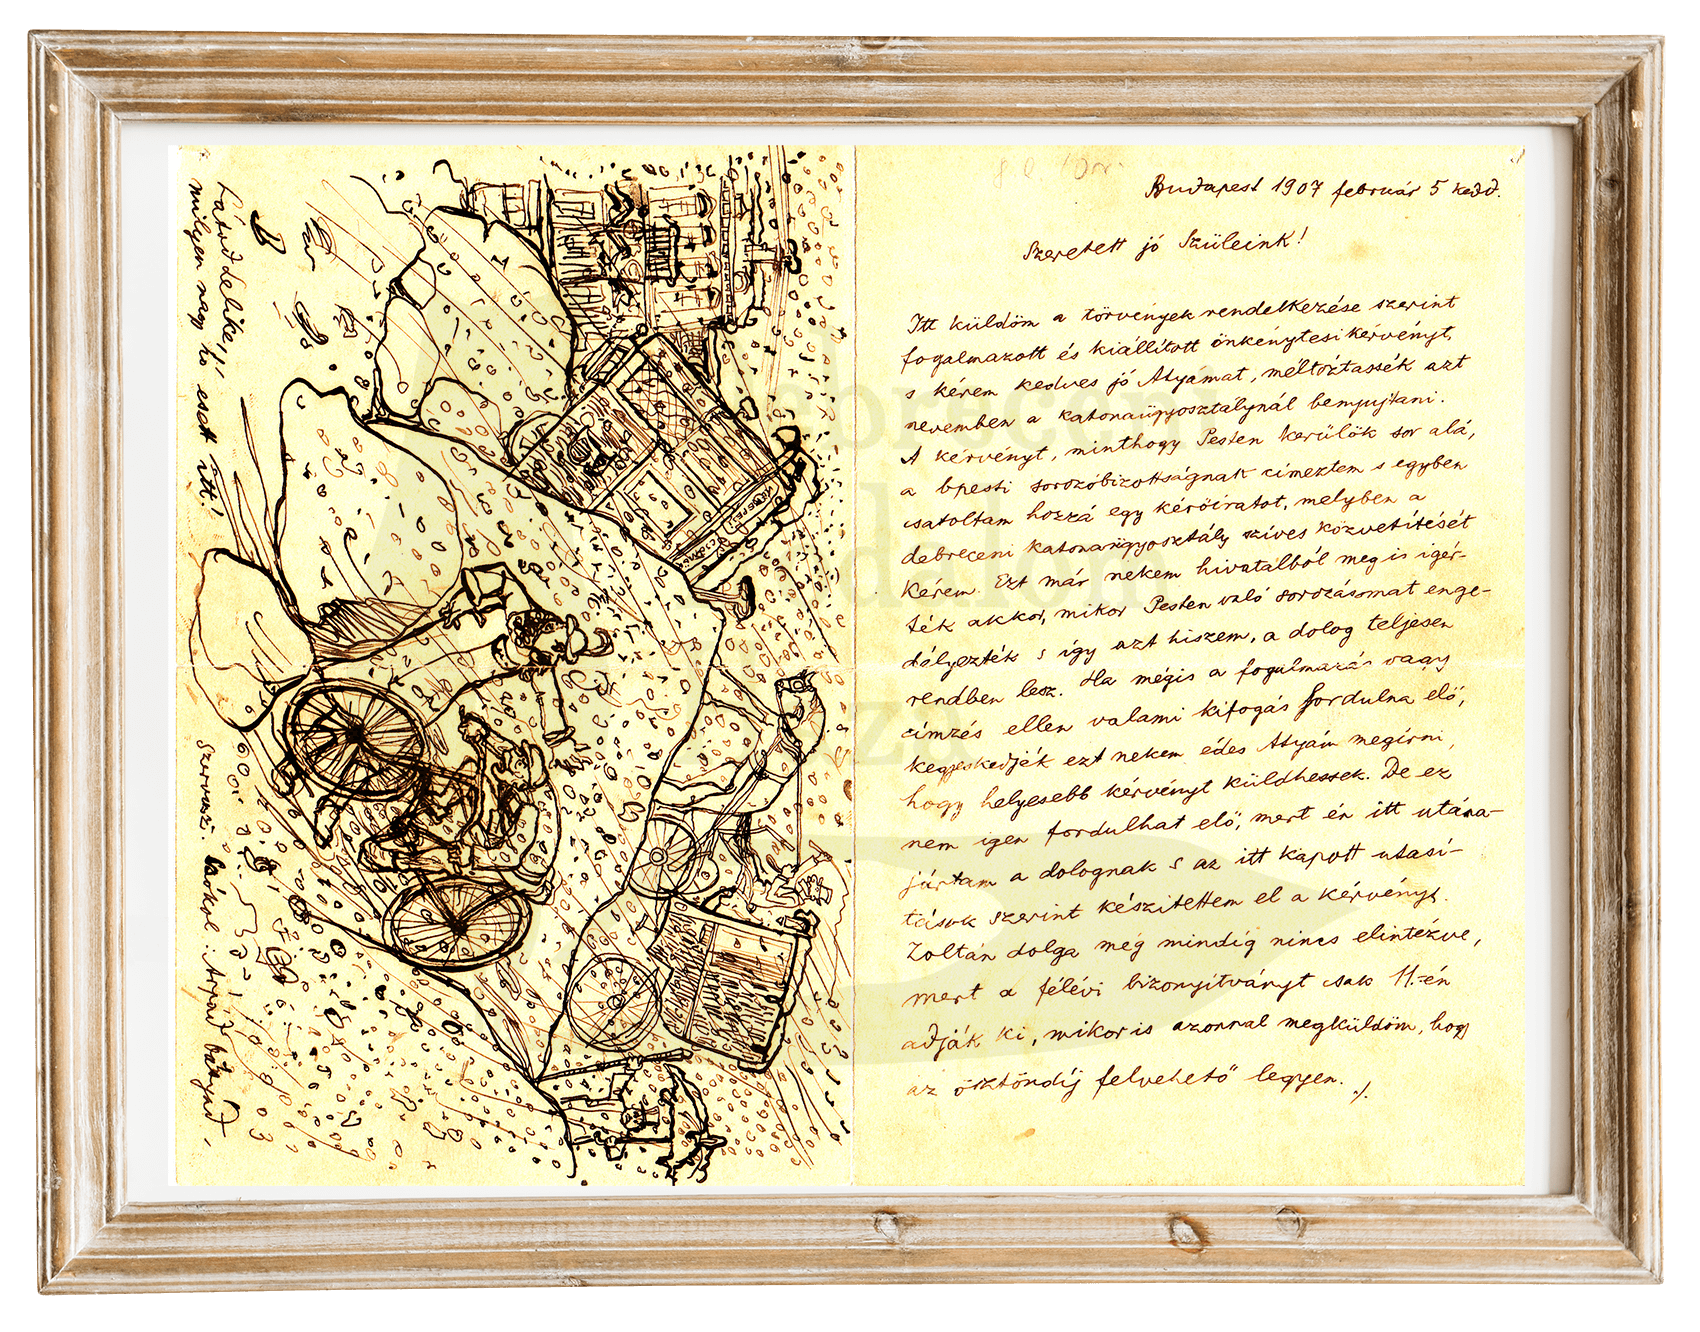 Budapest 1907 február 5 kedd.
Szeretett jó Szüleink!
Itt küldöm a törvények rendelkezése szerint
fogalmazott és kiállított önkénytesi kérvényt,
s kérem kedves jó Atyámat, méltóztassék azt
nevemben a katonaügyosztálynál benyujtani.
A kérvényt, minthogy Pesten kerülök sor alá,
a bpesti sorozóbizottságnak cimeztem s egyben
csatoltam hozzá egy kérőiratot, melyben a
debreceni katonaügyosztály szíves közvetítését
kérem. Ezt már nekem hivatalból meg is igér-
ték akkor, mikor Pesten való sorozásomat enge-
délyezték s így azt hiszem, a dolog teljesen
rendben lesz. Ha mégis a fogalmazás vagy
címzés ellen valami kifogás fordulna elő,
kegyeskedjék ezt nekem édes Atyám megírni,
hogy helyesebb kérvényt küldhessek. De ez
nem igen fordulhat elő, mert én itt utána-
jártam a dolognak s az itt kapott utasí-
tások szerint készitettem el a kérvényt.
Zoltán dolga még mindig nincs elintézve,
mert a félévi bizonyítványt csak 11.-én
adják ki, mikor is azonnal megküldöm, hogy
az ösztöndíj felvehető legyen. ./.
Látod Lelike,
milyen nagy hó esett itt!
Szervusz. Csókol: Árpád bátyád.